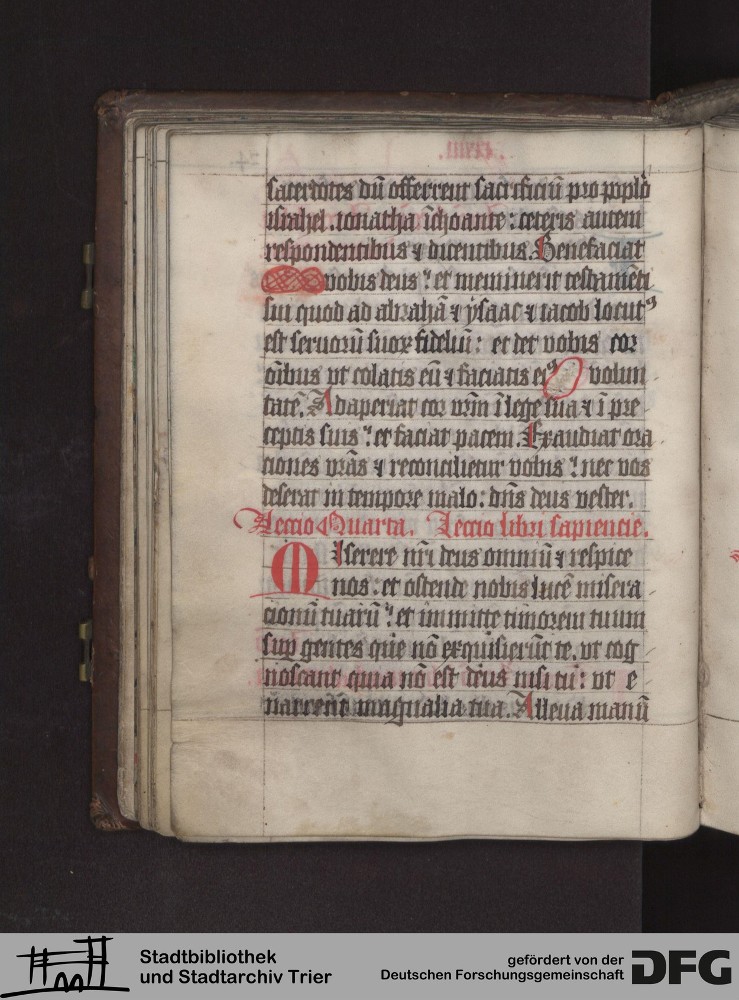 sacerdotes dū offerrent sacrificiū pro pp̄lo
israhel . ionatha īchoante : ceteris autem
respondentibus ⁊ dicentibus . Benefaciat
vobis deus : et meminerit testamēti
sui quod ad abrahā ⁊ ysaac ⁊ iacob locutꝰ
est seruorū suoꝝ fideliū : et det vobis cor
oībus vt colatis eū ⁊ faciatis eiꝰ volun
tatē . Adaperiat cor vr̄m ī lege sua ⁊ ī pre
ceptis suis : et faciat pacem . Exaudiat ora
ciones vr̄as ⁊ reconcilietur vobis : nec vos
deserat in tempore malo : dn̄s deus vester .
Leccio Quarta . Leccio libri sapiencie .
Miserere nr̄i deus omniū ⁊ respice
nos : et ostende nobis lucē misera
cionū tuarū : et immitte timorem tuum
suꝑ gentes que nō exquisierūt te . vt cog
noscant quia nō est deus nisi tu : vt e
narrent magnalia tua . Alleua manū
Stadtbibliothek
und Stadtarchiv Trier
gefördert von der
Deutschen Forschungsgemeinschaft
DFG